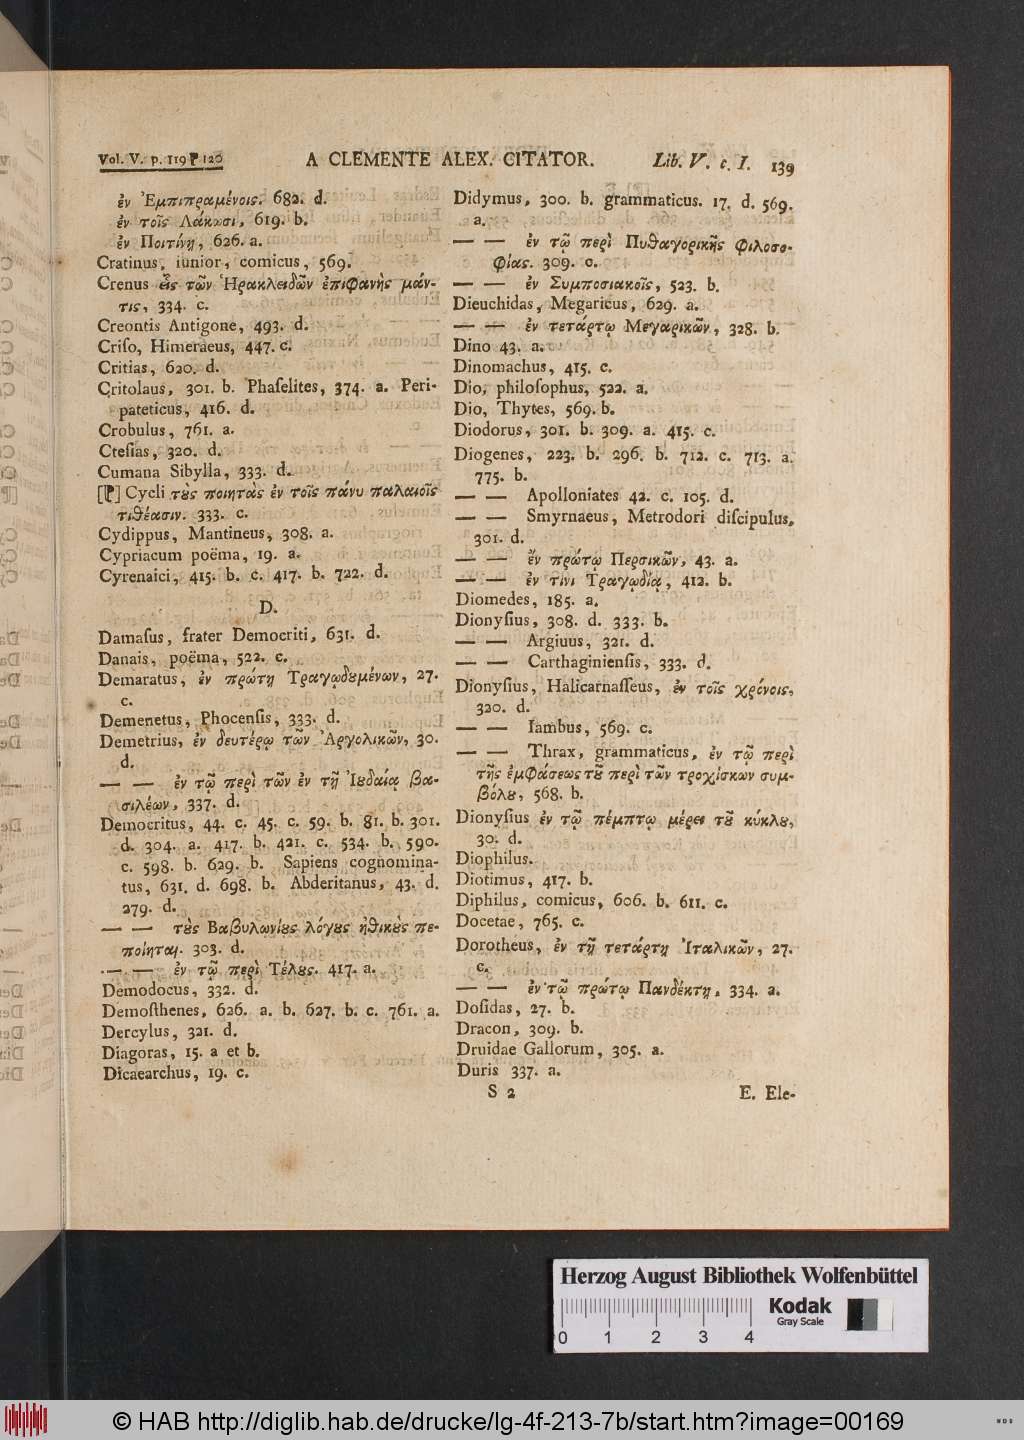 Vol. V. p. 119 ⁋ 120 A CLEMENTE ALEX. CITATOR. Lib. V. c. I. 139
ἐν Ἐμπιπραμένοις. 682. d.
ἐν τοῖς Λάκωσι, 619. b.
ἐν Ποιτίνῃ, 626. a.
Cratinus, iunior, comicus, 569.
Crenus εἷς τῶν Ἡρακλειδῶν ἐπιφανὴς μάν-
τις, 334. c.
Creontis Antigone, 493. d.
Criſo, Himeraeus, 447. c.
Critias, 620. d.
Critolaus, 301. b. Phaſelites, 374. a. Peri-
pateticus, 416. d.
Crobulus, 761. a.
Cteſias, 320. d.
Cumana Sibylla, 333. d.
[⁋] Cycli τȣ̀ς ποιητὰς ἐν τοῖς πάνυ παλαιοῖς
τιθέασιν. 333. c.
Cydippus, Mantineus, 308. a.
Cypriacum poëma, 19. a.
Cyrenaici, 415. b. c. 417. b. 722. d.
D.
Damaſus, frater Democriti, 631. d.
Danais, poëma, 522. c.
Demaratus, ἐν πρώτῃ Τραγῳδȣμένων, 27.
c.
Demenetus, Phocenſis, 333. d.
Demetrius, ἐν δευτέρῳ τῶν Ἀργολικῶν, 30.
d.
— — ἐν τῷ περὶ τῶν ἐν τῇ Ἰȣδαίᾳ βα-
σιλέων, 337. d.
Democritus, 44. c. 45. c. 59. b. 81. b. 301.
d. 304. a. 417. b. 421. c. 534. b. 590.
c. 598. b. 629. b. Sapiens cognomina-
tus, 631. d. 698. b. Abderitanus, 43. d.
279. d.
— — τȣ̀ς Βαβυλωνίȣς λόγȣς ἠθικȣ̀ς πε-
ποίηται. 303. d.
— — ἐν τῷ περὶ Τέλȣς. 417. a.
Demodocus, 332. d.
Demoſthenes, 626. a. b. 627. b. c. 761. a.
Dercylus, 321. d.
Diagoras, 15. a et b.
Dicaearchus, 19. c.
Didymus, 300. b. grammaticus. 17. d. 569.
a.
— — ἐν τῷ περὶ Πυθαγορικῆς φιλοσο-
φίας. 309. c.
— — ἐν Συμποσιακοῖς, 523. b.
Dieuchidas, Megaricus, 629. a.
— — ἐν τετάρτῳ Μεγαρικῶν, 328. b.
Dino 43. a.
Dinomachus, 415. c.
Dio, philoſophus, 522. a.
Dio, Thytes, 569. b.
Diodorus, 301. b. 309. a. 415. c.
Diogenes, 223. b. 296. b. 712. c. 713. a.
775. b.
— — Apolloniates 42. c. 105. d.
— — Smyrnaeus, Metrodori diſcipulus,
301. d.
— — ἐν πρώτῳ Περσικῶν, 43. a.
— — ἐν τινι Τραγῳδίᾳ, 412. b.
Diomedes, 185. a.
Dionyſius, 308. d. 333. b.
— — Argiuus, 321. d.
— — Carthaginienſis, 333. d.
Dionyſius, Halicarnaſſeus, ἐν τοῖς χρόνοις,
320. d.
— — Iambus, 569. c.
— — Thrax, grammaticus, ἐν τῷ περὶ
τῆς ἐμφάσεως τȣ͂ περὶ τῶν τροχίσκων συμ-
βόλȣ, 568. b.
Dionyſius ἐν τῷ πέμπτῳ μέρει τȣ͂ κύκλȣ,
30. d.
Diophilus.
Diotimus, 417. b.
Diphilus, comicus, 606. b. 611. c.
Docetae, 765. c.
Dorotheus, ἐν τῇ τετάρτῃ Ἰταλικῶν, 27.
c.
— — ἐν τῷ πρώτῳ Πανδέκτῃ, 334. a.
Doſidas, 27. b.
Dracon, 309. b.
Druidae Gallorum, 305. a.
Duris 337. a.
S 2 E. Ele-
Herzog August Bibliothek Wolfenbüttel
0 1 2 3 4
Kodak
Gray Scale
© HAB http://diglib.hab.de/drucke/lg-4f-213-7b/start.htm?image=00169